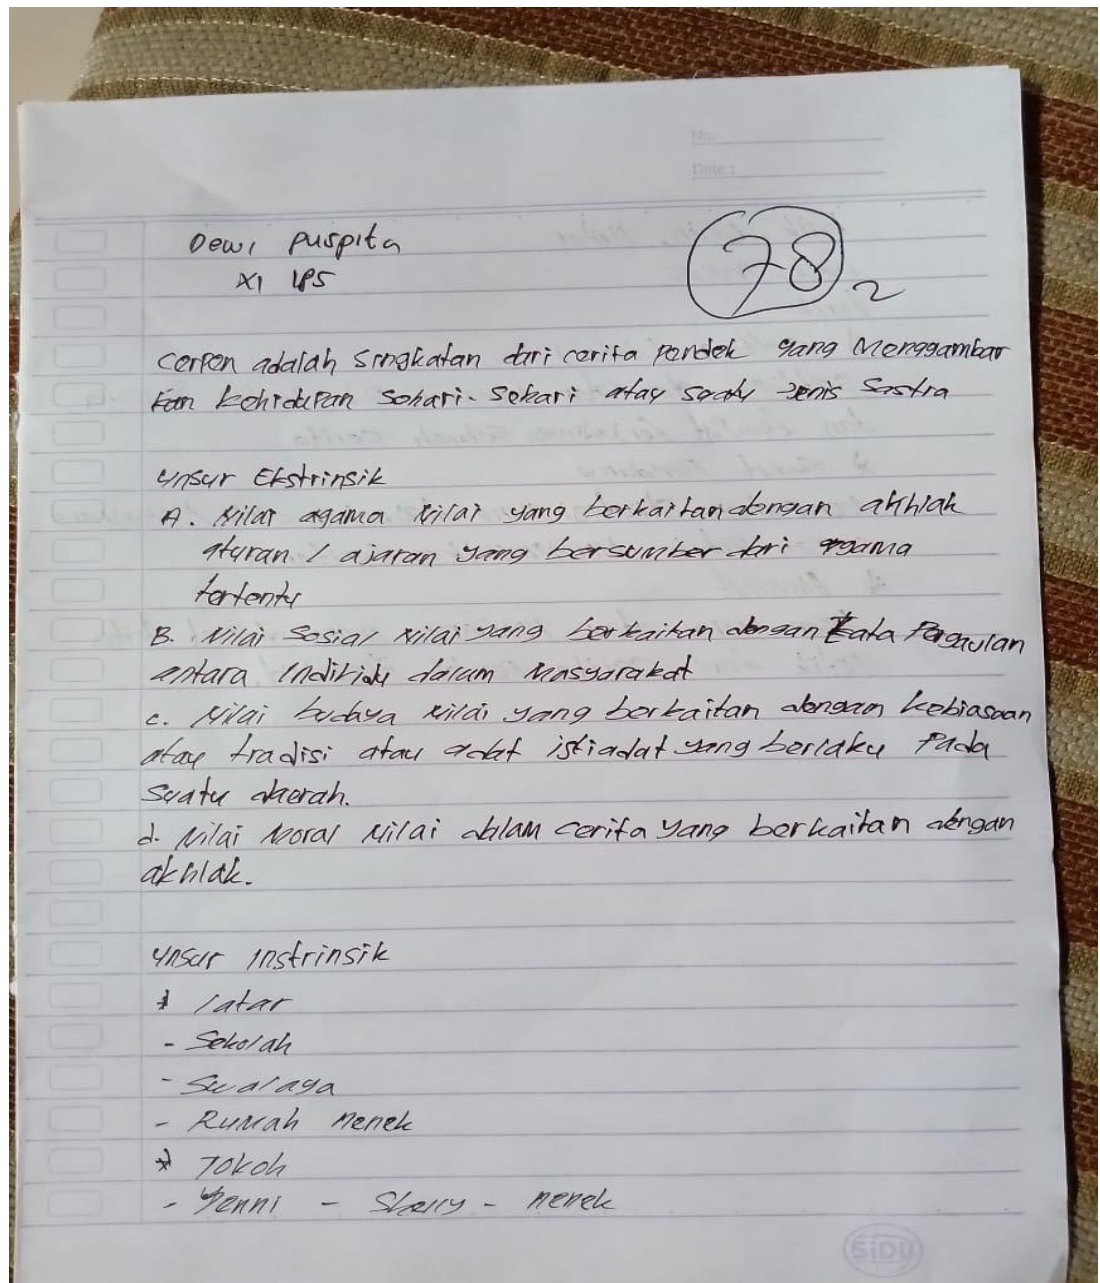 No:
Date:
Dewi Puspita
XI IPS
78 2
Cerpen adalah singkatan dari cerita pendek yang Menggambar
kan kehidupan sehari-sehari atau suatu jenis Sastra
Unsur Ekstrinsik
A. Nilai agama Nilai yang berkaitan dengan akhlak
aturan / ajaran yang bersumber dari agama
tertentu
B. Nilai Sosial Nilai yang berkaitan dengan tata Pergaulan
antara individu dalam Masyarakat
c. Nilai budaya Nilai yang berkaitan dengan kebiasaan
atau tradisi atau adat istiadat yang berlaku Pada
Suatu daerah.
d. Nilai Moral Nilai dalam cerita yang berkaitan dengan
akhlak.
Unsur Instrinsik
* latar
- Sekolah
- Swalaya
- Rumah Nenek
* Tokoh
- Yenni - Sherry - nenek
SiDU